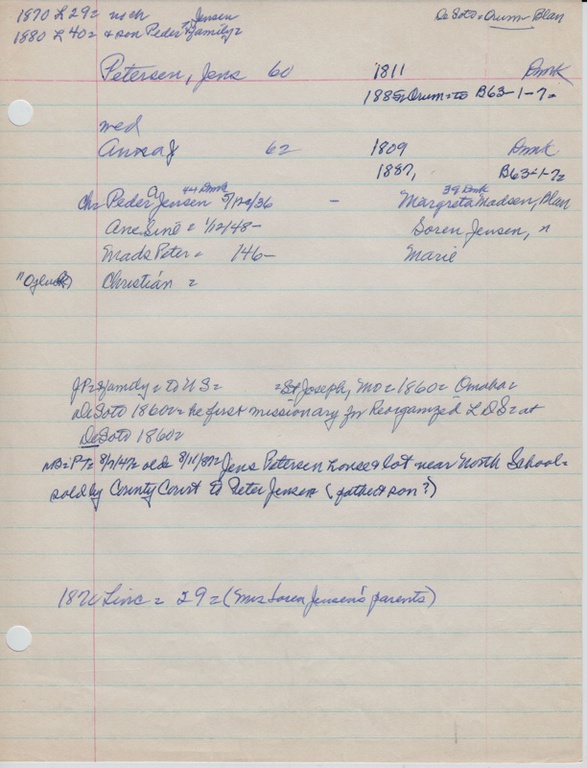 1870 L 29= noch
DeSoto - Orum - Blair
1880 L 40= & son Peder Jensen & family=
Petersen, Jens 60 1811 Dmk
1885= Orum = to B63-1-7=
wed
Anna J 62 1809 Dmk
1887, B63-1-7=
44 Dmk 39 Dmk
ch= Peder Jensen 5/ /36 - Margreta Madsen, Blair
Ane Sine = 1/12/48- Soren Jensen, "
Mads Peter = 146- Marie
Christian =
JP= & family = to US= = St Joseph, Mo = 1860= Omaha=
DeSoto 1860s= he first missionary for Reorganized LDS= at
DeSoto 1860=
NB= PT= 8/11/87= Jens Petersen house & lot near North School=
sold by County Court to Peter Jensen (father & son?)
1870 Linc = 29 = (Mrs Soren Jensen's parents)